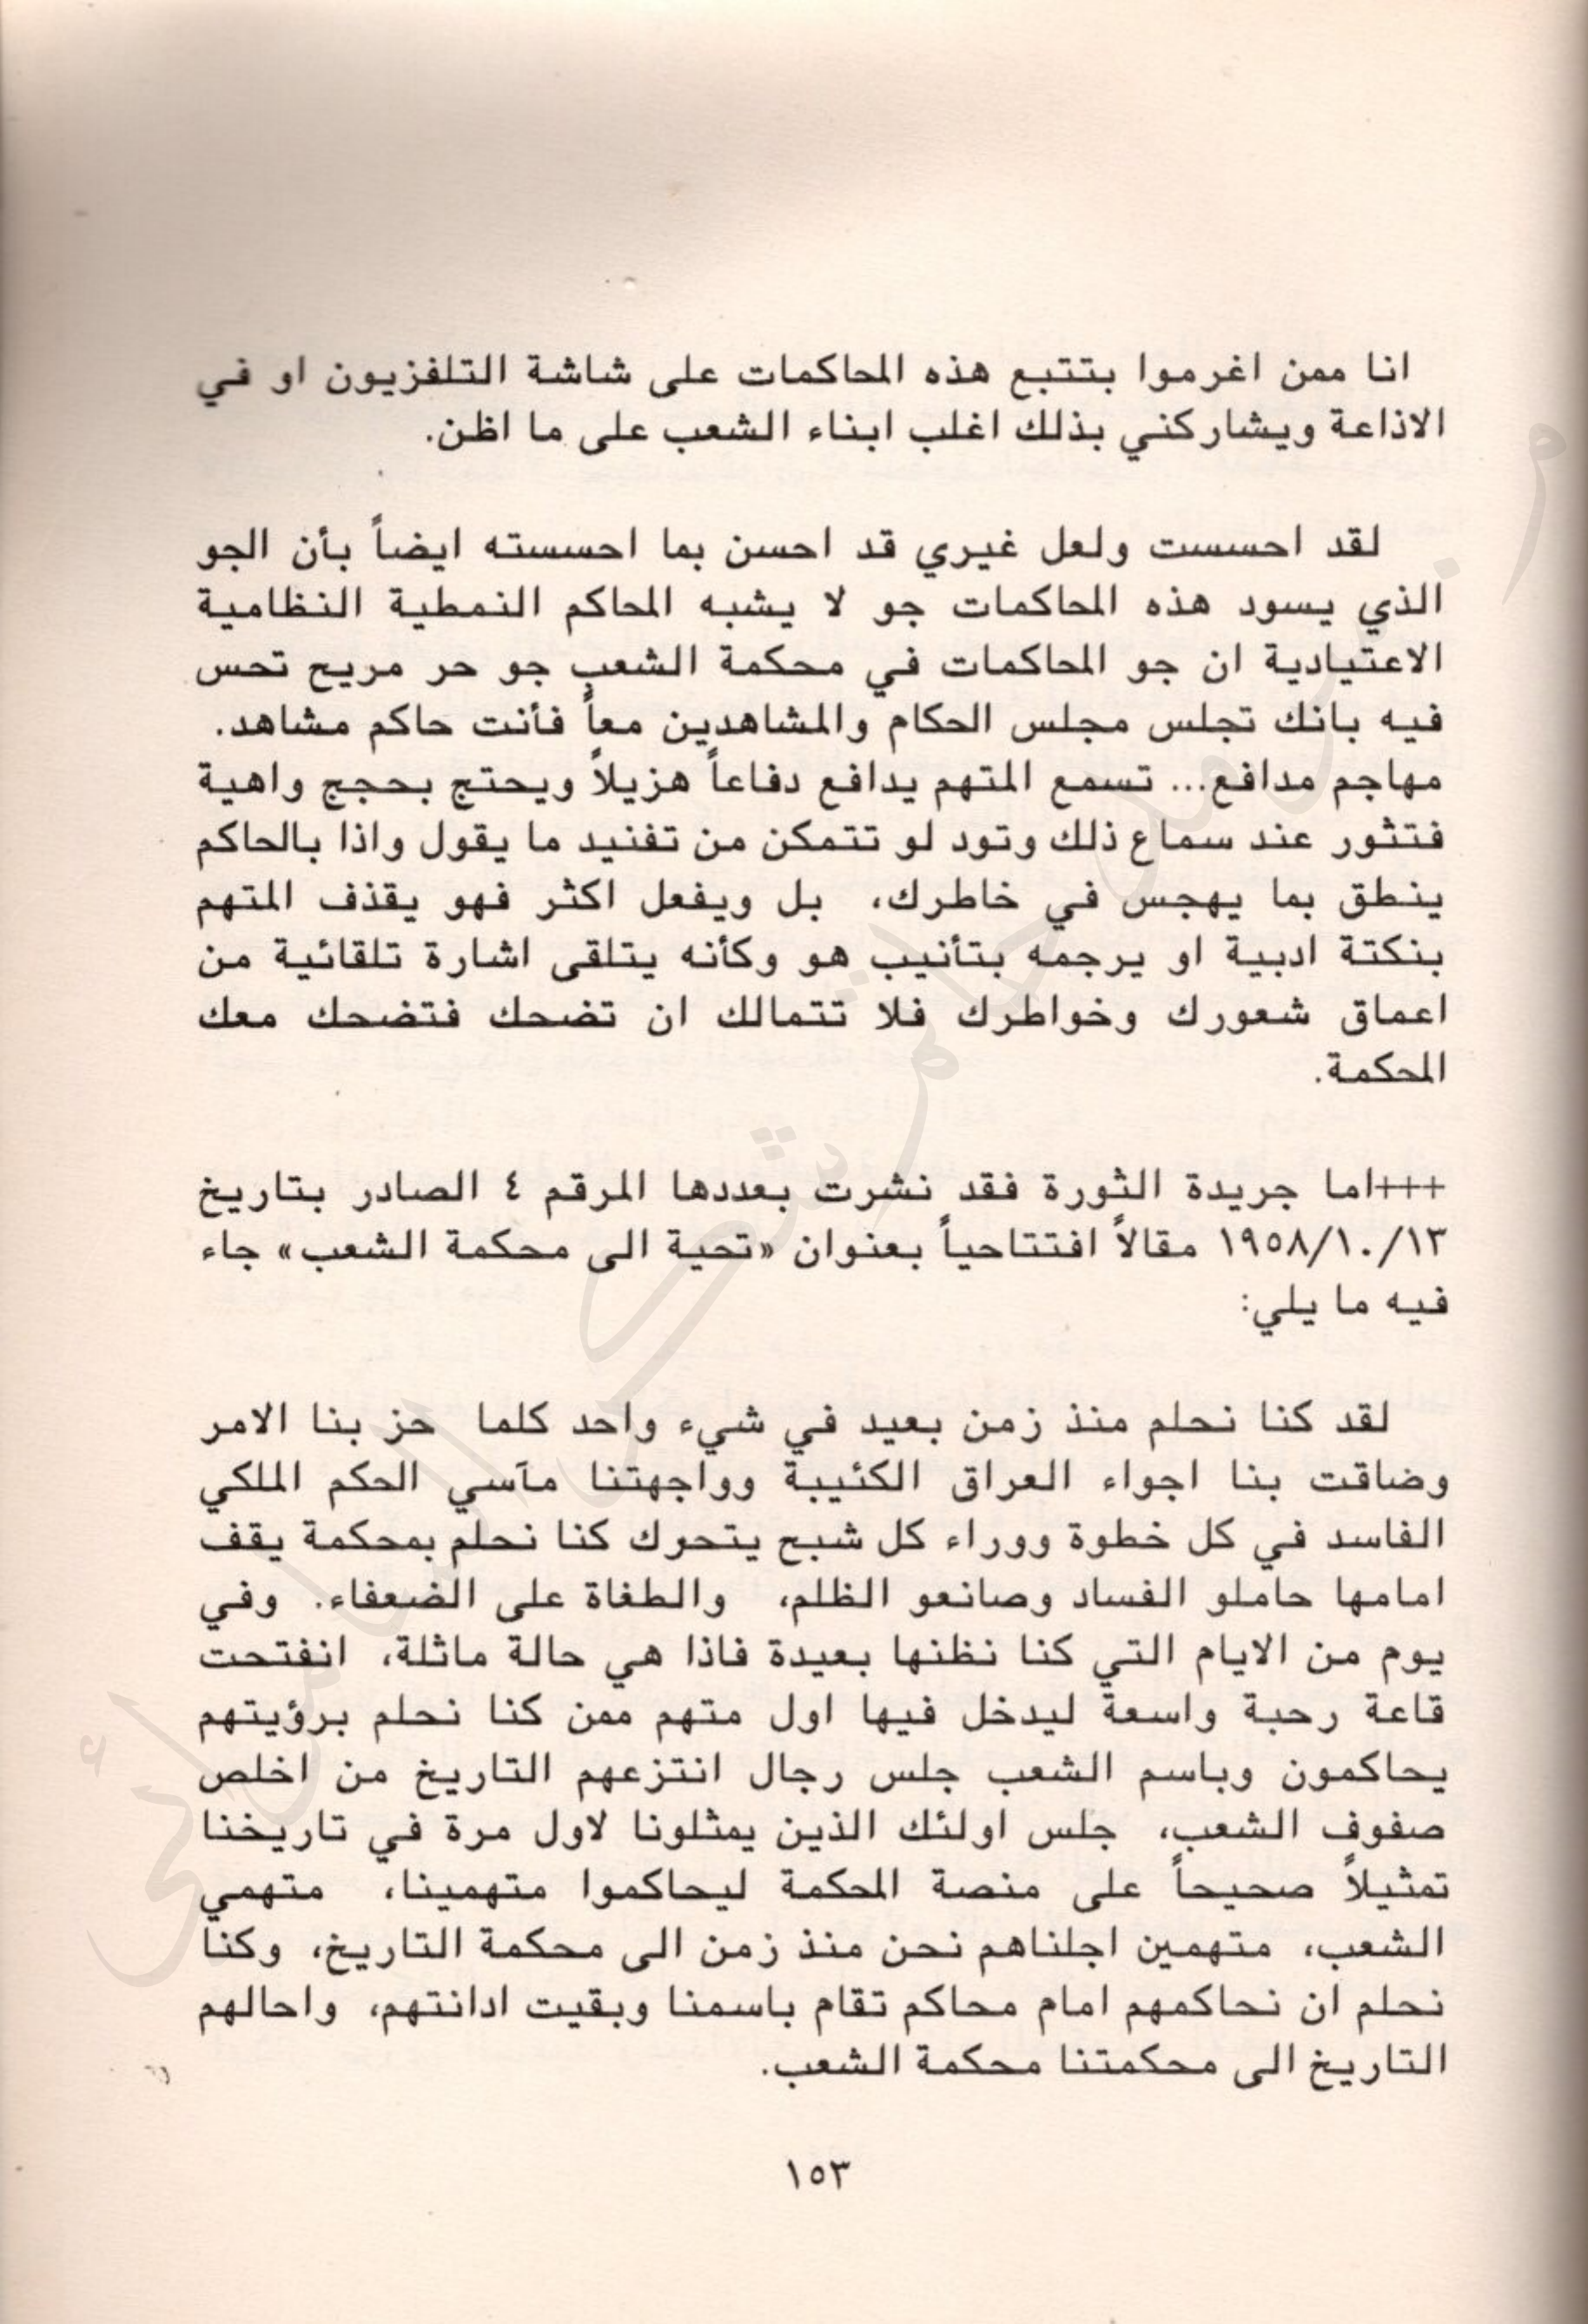 انا ممن اغرموا بتتبع هذه المحاكمات على شاشة التلفزيون او في
الاذاعة ويشاركني بذلك اغلب ابناء الشعب على ما اظن.
لقد احسست ولعل غيري قد احسن بما احسسته ايضاً بأن الجو
الذي يسود هذه المحاكمات جو لا يشبه المحاكم النمطية النظامية
الاعتيادية ان جو المحاكمات في محكمة الشعب جو حر مريح تحس
فيه بانك تجلس مجلس الحكام والمشاهدين معاً فأنت حاكم مشاهد.
مهاجم مدافع... تسمع المتهم يدافع دفاعاً هزيلاً ويحتج بحجج واهية
فتثور عند سماع ذلك وتود لو تتمكن من تفنيد ما يقول واذا بالحاكم
ينطق بما يهجس في خاطرك، بل ويفعل اكثر فهو يقذف المتهم
بنكتة ادبية او يرجمه بتأنيب هو وكأنه يتلقى اشارة تلقائية من
اعماق شعورك وخواطرك فلا تتمالك ان تضحك فتضحك معك
المحكمة.
+++اما جريدة الثورة فقد نشرت بعددها المرقم ٤ الصادر بتاريخ
١٩٥٨/١٠/١٣ مقالاً افتتاحياً بعنوان «تحية الى محكمة الشعب» جاء
فيه ما يلي:
لقد كنا نحلم منذ زمن بعيد في شيء واحد كلما حز بنا الامر
وضاقت بنا اجواء العراق الكئيبة وواجهتنا مآسي الحكم الملكي
الفاسد في كل خطوة ووراء كل شبح يتحرك كنا نحلم بمحكمة يقف
امامها حاملو الفساد وصانعو الظلم، والطغاة على الضعفاء. وفي
يوم من الايام التي كنا نظنها بعيدة فاذا هي حالة ماثلة، انفتحت
قاعة رحبة واسعة ليدخل فيها اول متهم ممن كنا نحلم برؤيتهم
يحاكمون وباسم الشعب جلس رجال انتزعهم التاريخ من اخلص
صفوف الشعب، جلس اولئك الذين يمثلونا لاول مرة في تاريخنا
تمثيلاً صحيحاً على منصة المحكمة ليحاكموا متهمينا، متهمي
الشعب، متهمين اجلناهم نحن منذ زمن الى محكمة التاريخ، وكنا
نحلم ان نحاكمهم امام محاكم تقام باسمنا وبقيت ادانتهم، واحالهم
التاريخ الى محكمتنا محكمة الشعب.
١٥٣